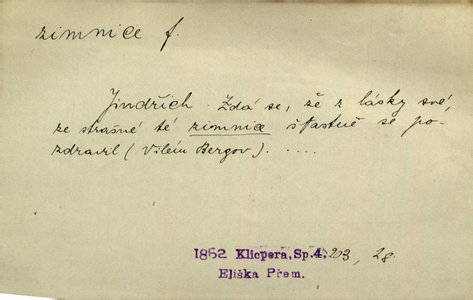 zimnice f.
Jindřich. Zdá se, že z lásky své,
ze strašné té zimnice šťastně se po-
zdravil (Vilém Bergov). ....
1852 Klicpera, Sp. 4, 203, 28.
Eliška Přem.